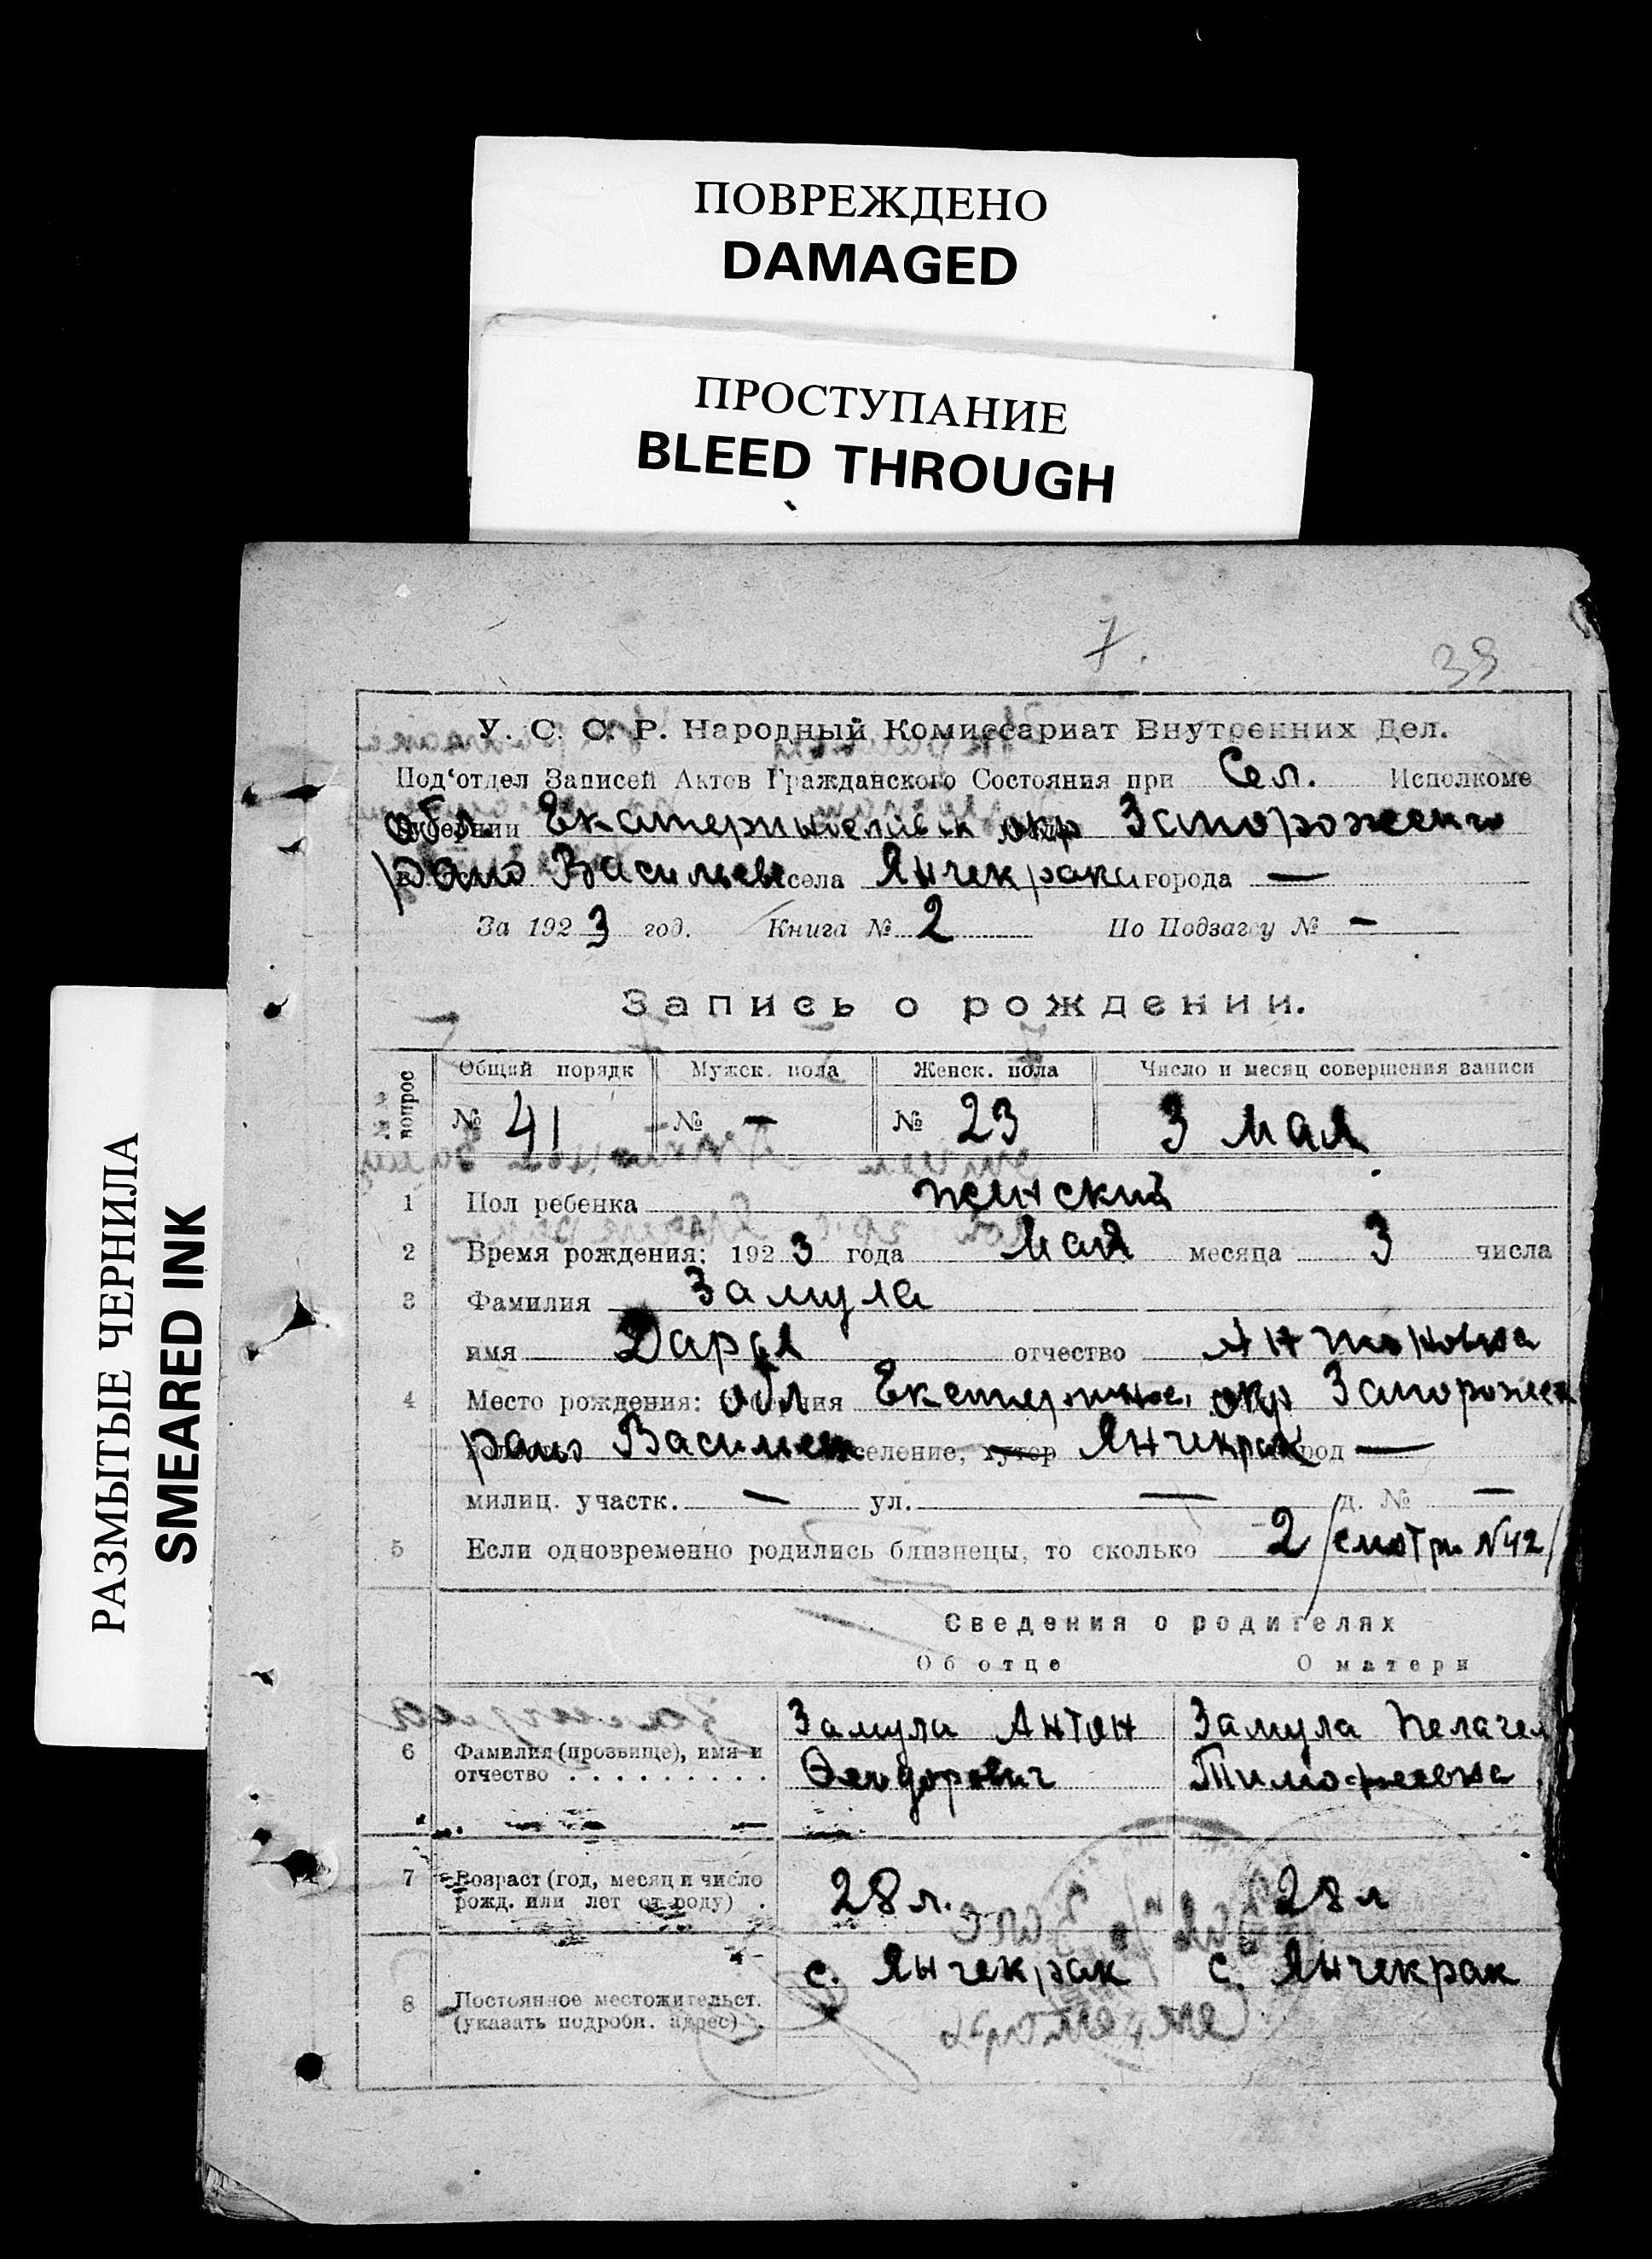 ПОВРЕЖДЕНО
DAMAGED
ПРОСТУПАНИЕ
BLEED THROUGH
РАЗМЫТЫЕ ЧЕРНИЛА
SMEARED INK
7.
39
У. С. С. Р. Народный Комиссариат Внутренних Дел.
Под‘отдел Записей Актов Гражданского Состояния при Сел. Исполкоме
обл. окр Запорожского
раио Васильев села Янчекраки города —
За 1923 год. Книга № 2 По Подзагсу № —
Запись о рождении.
№№ вопрос
Общий порядк Мужск. пола Женск. пола Число и месяц совершения записи
№ 41 № — № 23 3 мая
1 Пол ребенка женский
2 Время рождения: 1923 года мая месяца 3 числа
3 Фамилия Замула
имя Дарья отчество Антоновна
4 Место рождения: обл Екатеринос. окр Запорожск
раио Васильев селение, хутор Янчекрак город —
милиц. участк. — ул. — д. № —
5 Если одновременно родились близнецы, то сколько 2 /смотр. №42/
Сведения о родителях
Об отце О матери
Замула Антон Замула Пелагея
6 Фамилия (прозвище), имя и
отчество . . . . . . . . . Феодорович Тимофеевна
7 Возраст (год, месяц и число
рожд. или лет от роду) . 28 л. 28 л
с. Янчекрак с. Янчекрак
8 Постоянное местожительст.
(указать подробн. адрес) .